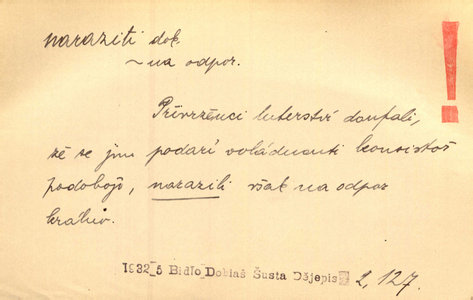 naraziti dok.
~ na odpor.
!
Přívrženci luterství doufali,
že se jim podaří ovládnouti konsistoř
podobojí, narazili však na odpor
králův.
1932_5 Bidlo_Dobiaš Šusta Dějepis 2, 127.